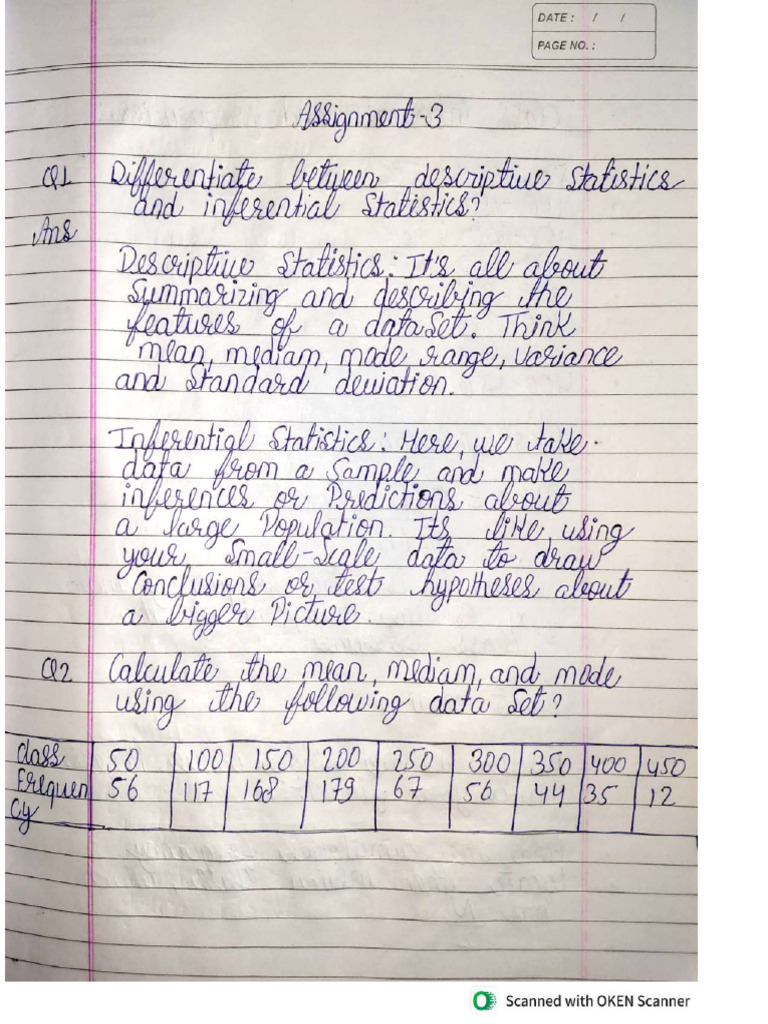 DATE : / /
PAGE NO. :
Assignment-3
Q1 Differentiate between descriptive statistics
and inferential statistics?
Ans
Descriptive Statistics: It's all about
Summarizing and describing the
features of a data set. Think
mean, mediam, mode range, variance
and standard deviation.
Inferential Statistics: Here, we take
data from a sample and make
inferences or Predictions about
a large Population. Its like using
your Small-Scale data to draw
Conclusions or test hypotheses about
a bigger Picture.
Q2 Calculate the mean, mediam, and mode
using the following data Set?
class 50 100 150 200 250 300 350 400 450
Frequen 56 117 168 179 67 56 44 35 12
cy
Scanned with OKEN Scanner